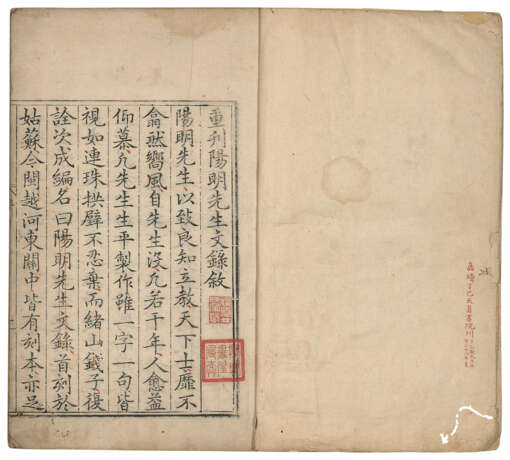 嘉靖丁巳天真書院刊
重刋陽明先生文錄敘
陽明先生以致良知立教天下士靡不
翕然嚮風自先生没凡若干年人愈益
仰慕凡先生生平製作雖一字一句皆
視如連珠拱璧不忍棄而緒山錢子復
詮次成編名曰陽明先生文錄首刻於
姑蘇今閩越河東關中皆有刻本亦足